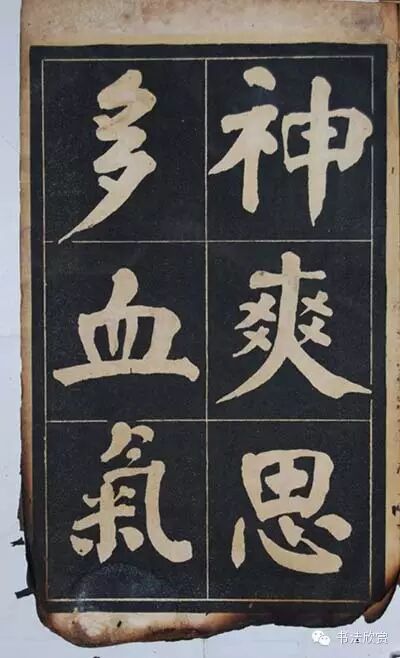 神爽思
多血氣
书法欣赏